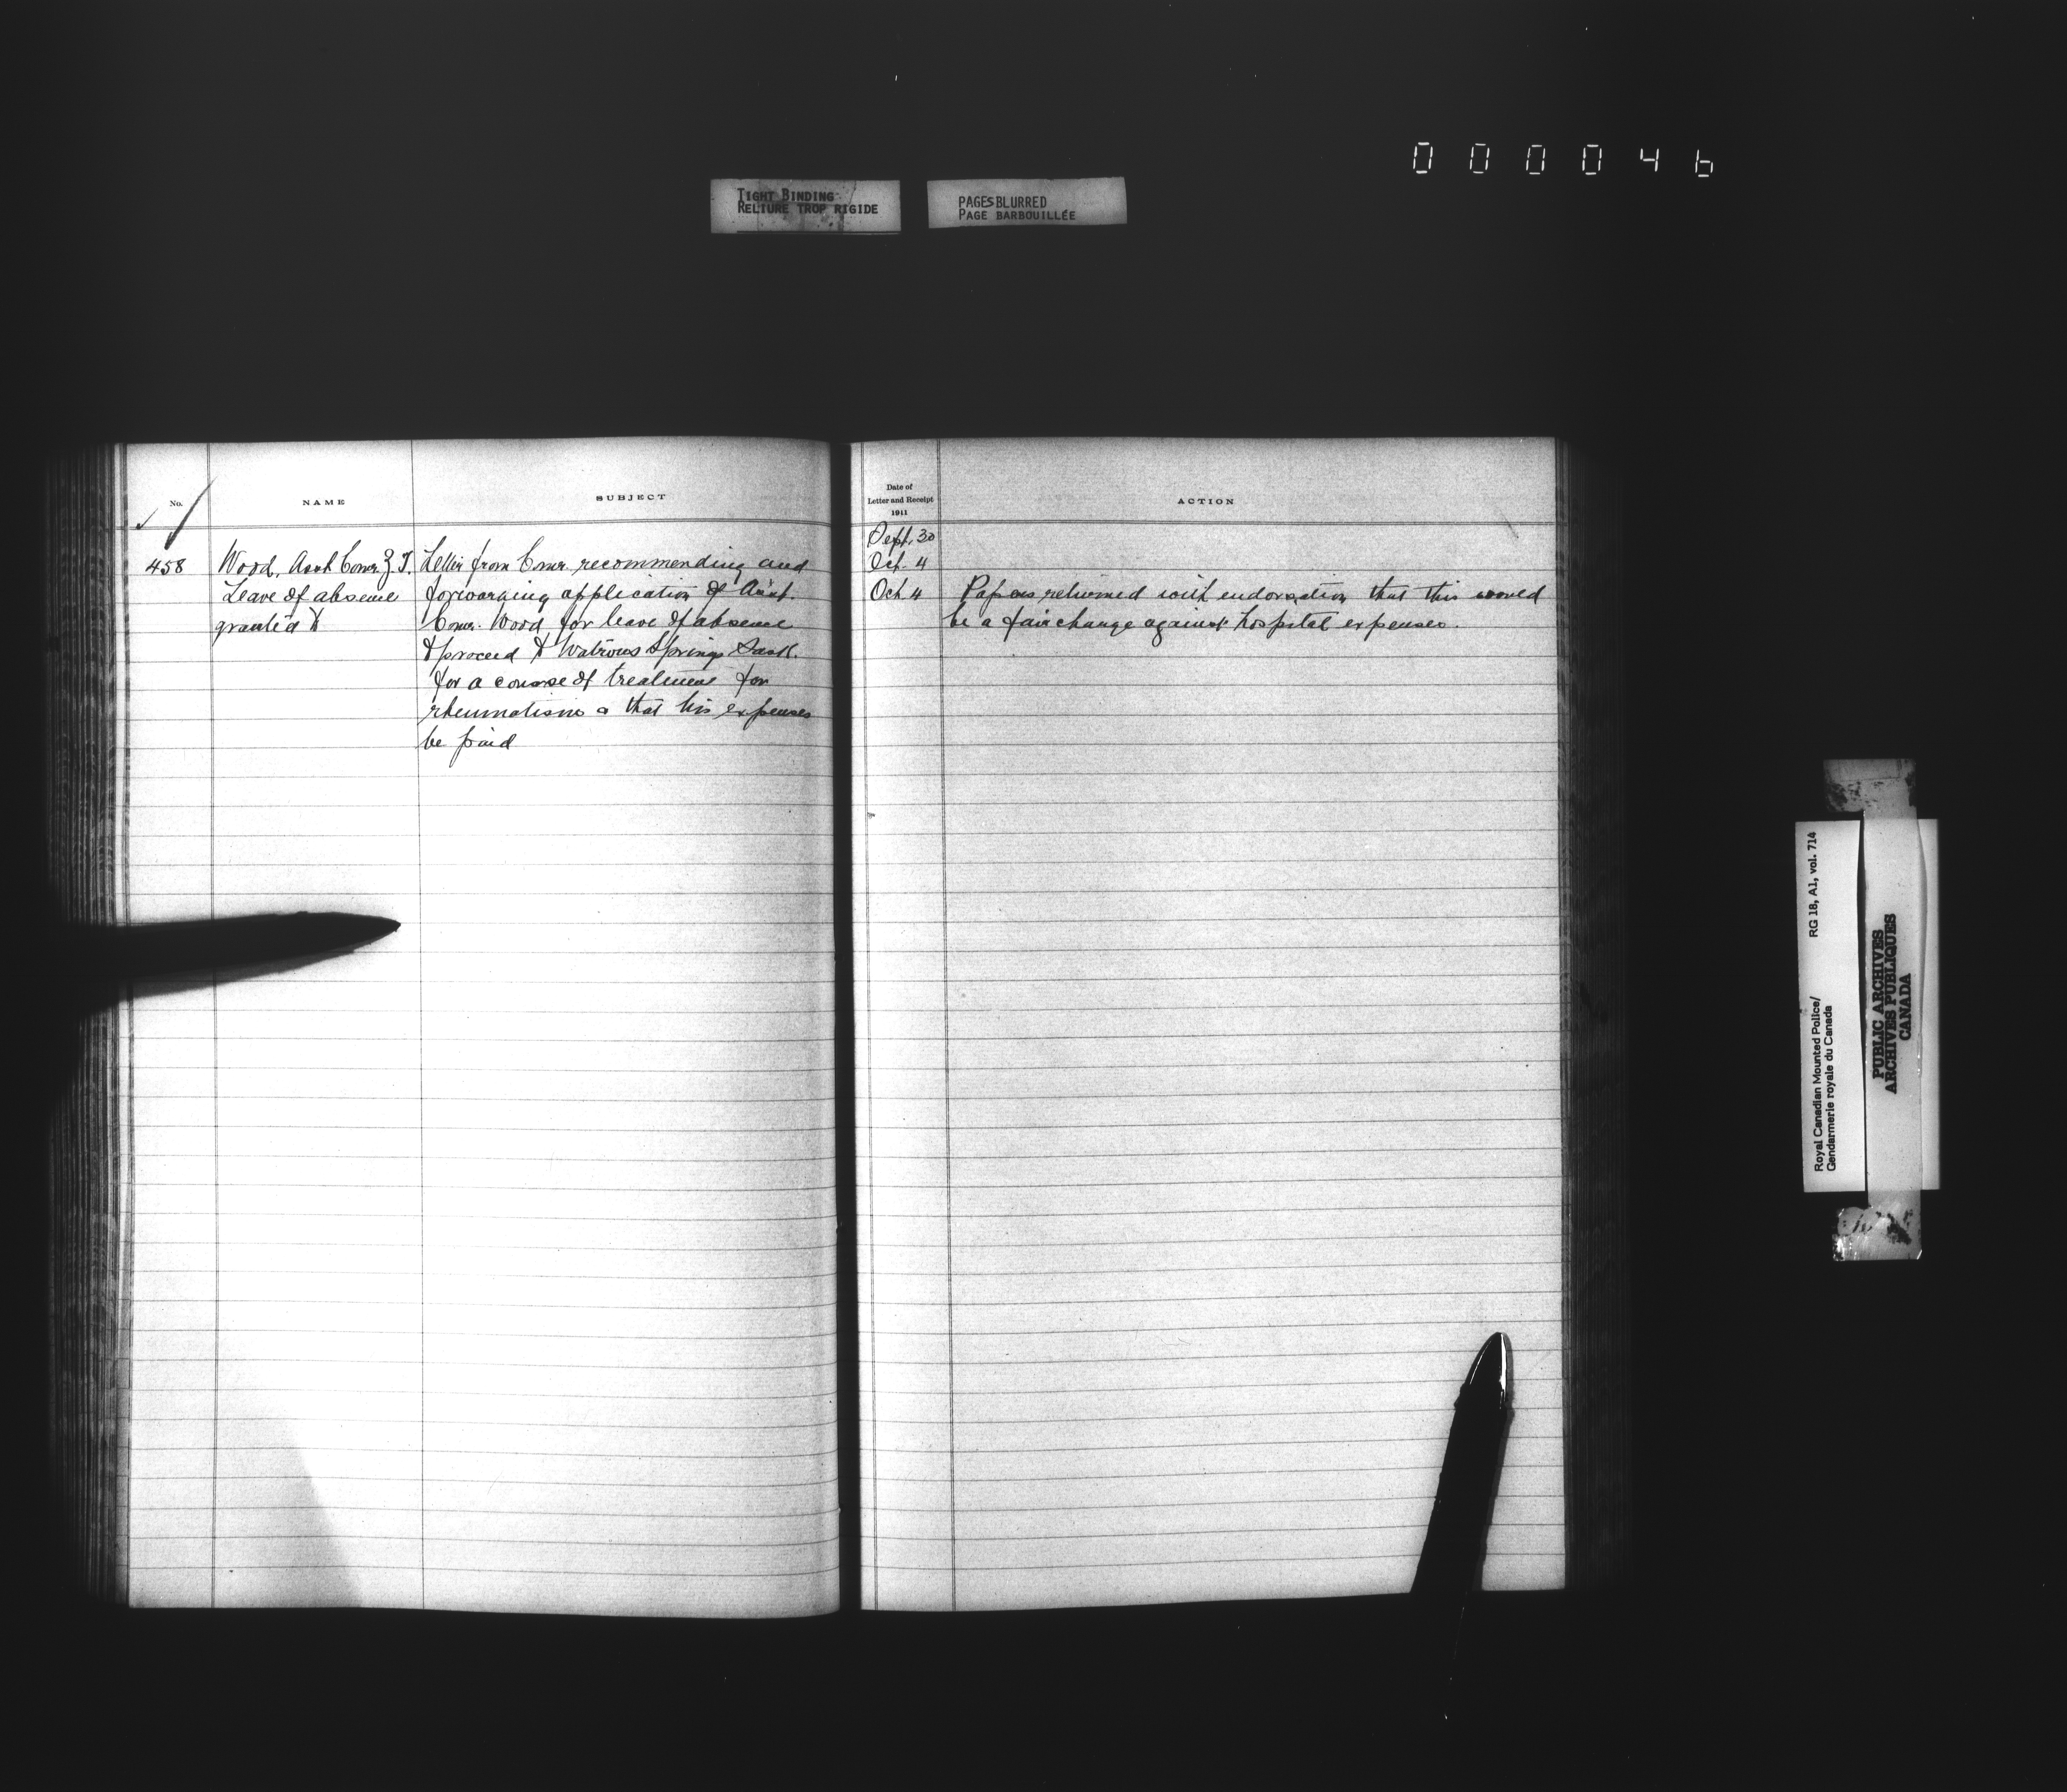 000046
TIGHT BINDING
RELIURE TROP RIGIDE
PAGES BLURRED
PAGE BARBOUILLÉE
No.
NAME
SUBJECT
458
Wood, Asst Comr. Z. T.
Leave of absence
granted to
Letter from Comr. recommending and
forwarding application of Asst.
Comr. Wood for leave of absence
to proceed to Watrous Springs Sask.
for a course of treatment for
rheumatism & that his expenses
be paid
Date of
Letter and Receipt
1911
ACTION
Sept. 30
Oct. 4
Oct 4
Papers returned with endorsation that this would
be a fair charge against hospital expenses.
RG 18, A1, vol. 714
Royal Canadian Mounted Police/
Gendarmerie royale du Canada
PUBLIC ARCHIVES
ARCHIVES PUBLIQUES
CANADA